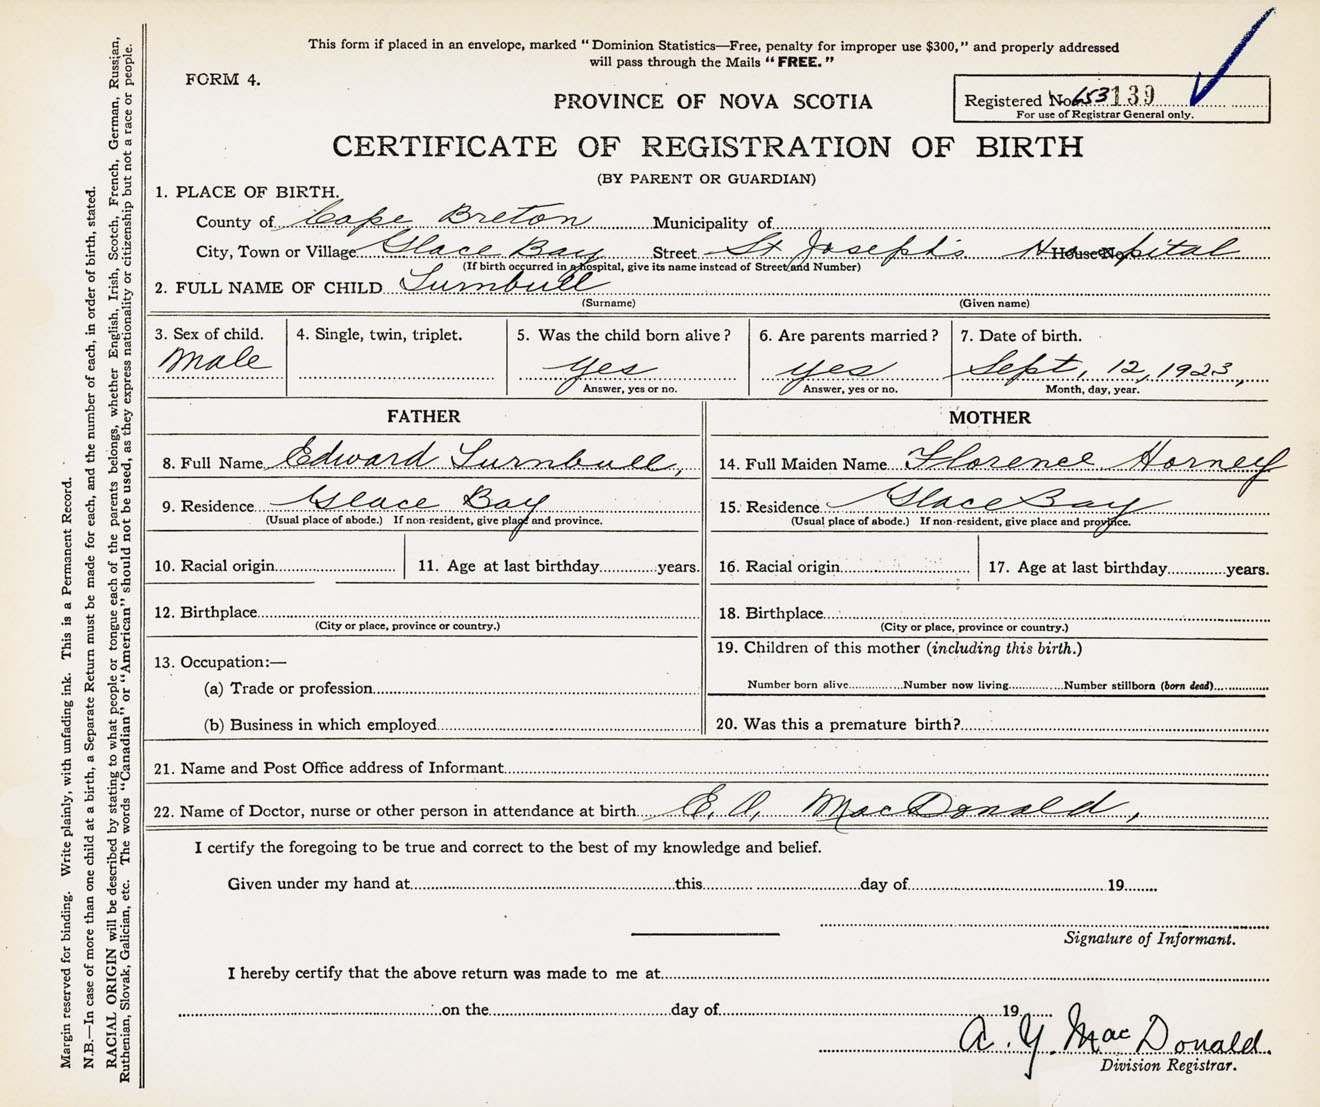 This form if placed in an envelope, marked "Dominion Statistics—Free, penalty for improper use $300," and properly addressed
will pass through the Mails "FREE."
FORM 4.
PROVINCE OF NOVA SCOTIA
Registered No. 653139
For use of Registrar General only.
CERTIFICATE OF REGISTRATION OF BIRTH
(BY PARENT OR GUARDIAN)
1. PLACE OF BIRTH.
County of Cape Breton Municipality of
City, Town or Village Glace Bay Street St Joseph's Hospital House No.
(If birth occurred in a hospital, give its name instead of Street and Number)
2. FULL NAME OF CHILD Turnbull
(Surname) (Given name)
3. Sex of child. 4. Single, twin, triplet. 5. Was the child born alive? 6. Are parents married? 7. Date of birth.
Male yes yes Sept, 12, 1923,
Answer, yes or no. Answer, yes or no. Month, day, year.
FATHER MOTHER
8. Full Name Edward Turnbull, 14. Full Maiden Name Florence Horney
9. Residence Glace Bay 15. Residence Glace Bay
(Usual place of abode.) If non-resident, give place and province. (Usual place of abode.) If non-resident, give place and province.
10. Racial origin 11. Age at last birthday years. 16. Racial origin 17. Age at last birthday years.
12. Birthplace 18. Birthplace
(City or place, province or country.) (City or place, province or country.)
13. Occupation:— 19. Children of this mother (including this birth.)
(a) Trade or profession Number born alive Number now living Number stillborn (born dead)
(b) Business in which employed 20. Was this a premature birth?
21. Name and Post Office address of Informant
22. Name of Doctor, nurse or other person in attendance at birth E. O. MacDonald,
I certify the foregoing to be true and correct to the best of my knowledge and belief.
Given under my hand at this day of 19
Signature of Informant.
I hereby certify that the above return was made to me at
on the day of 19
A. Y. MacDonald.
Division Registrar.
Margin reserved for binding. Write plainly, with unfading ink. This is a Permanent Record.
N.B.—In case of more than one child at a birth, a Separate Return must be made for each, and the number of each, in order of birth, stated.
RACIAL ORIGIN will be described by stating to what people or tongue each of the parents belongs, whether English, Irish, Scotch, French, German, Russian,
Ruthenian, Slovak, Galician, etc. The words "Canadian" or "American" should not be used, as they express nationality or citizenship but not a race or people.